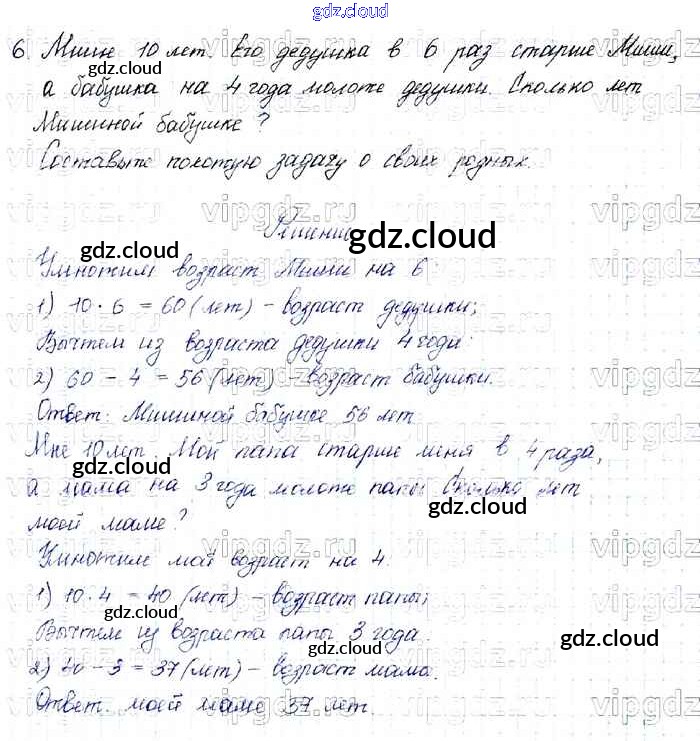 gdz.cloud
6. Мише 10 лет. Его дедушка в 6 раз старше Миши,
а бабушка на 4 года моложе дедушки. Сколько лет
Мишиной бабушке?
Составьте похожую задачу о своих родных.
Решение
Умножим возраст Миши на 6:
1) 10 · 6 = 60 (лет) – возраст дедушки;
Вычтем из возраста дедушки 4 года:
2) 60 – 4 = 56 (лет) – возраст бабушки.
Ответ: Мишиной бабушке 56 лет.
Мне 10 лет. Мой папа старше меня в 4 раза,
а мама на 3 года моложе папы. Сколько лет
моей маме?
Умножим мой возраст на 4.
1) 10 · 4 = 40 (лет) – возраст папы;
Вычтем из возраста папы 3 года.
2) 40 – 3 = 37 (лет) – возраст мама.
Ответ. моей маме 37 лет.